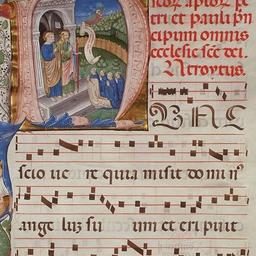 tri et pauli prin
cipum omnis
ecclesie sce dei.
Introytus.
Unc
scio ue re quia misit do mi n9
ange luz su um et eri puit